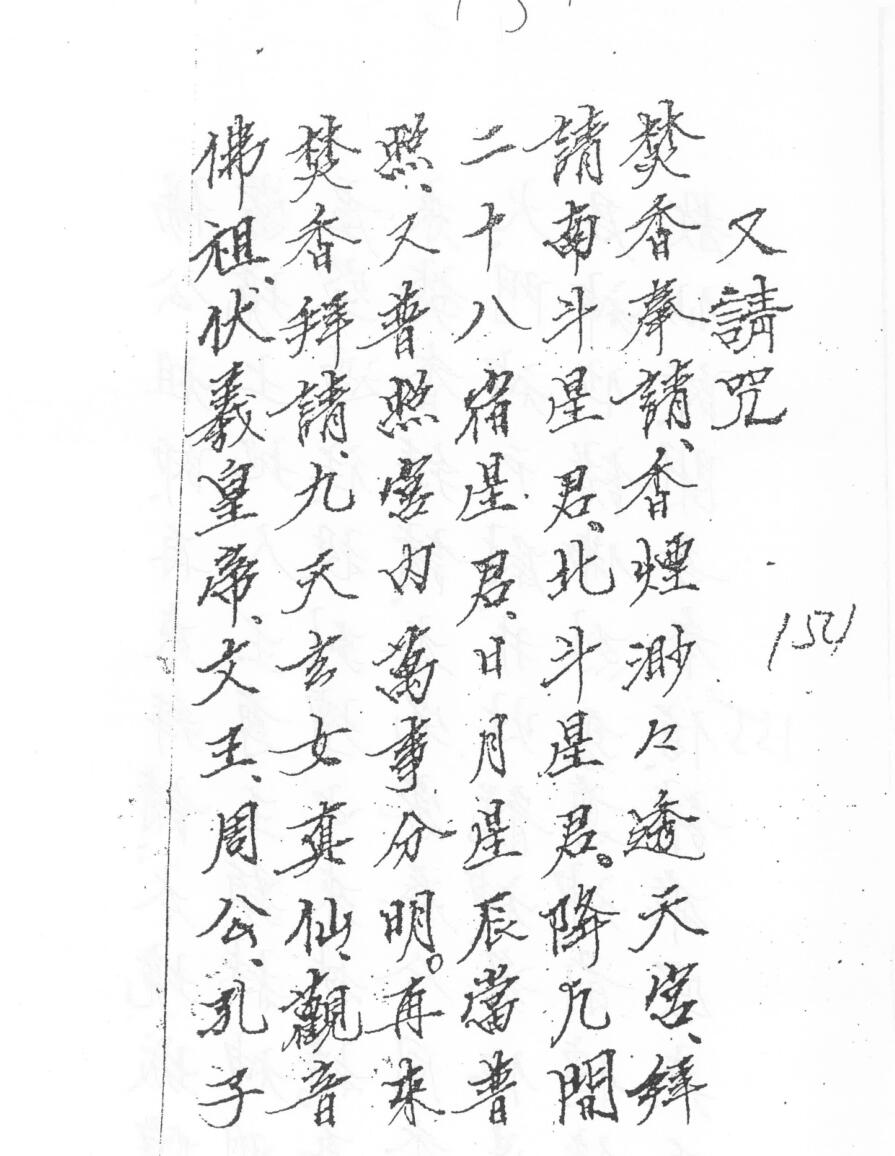 又請咒
焚香奉請、香煙渺々透天宮、拜
請南斗星君、北斗星君。降凡間
二十八宿星君、日月星辰當普
照、又普照宮內萬事分明。再來
焚香拜請、九天玄女真仙、觀音
佛祖、伏羲皇帝、文王、周公、孔子
151